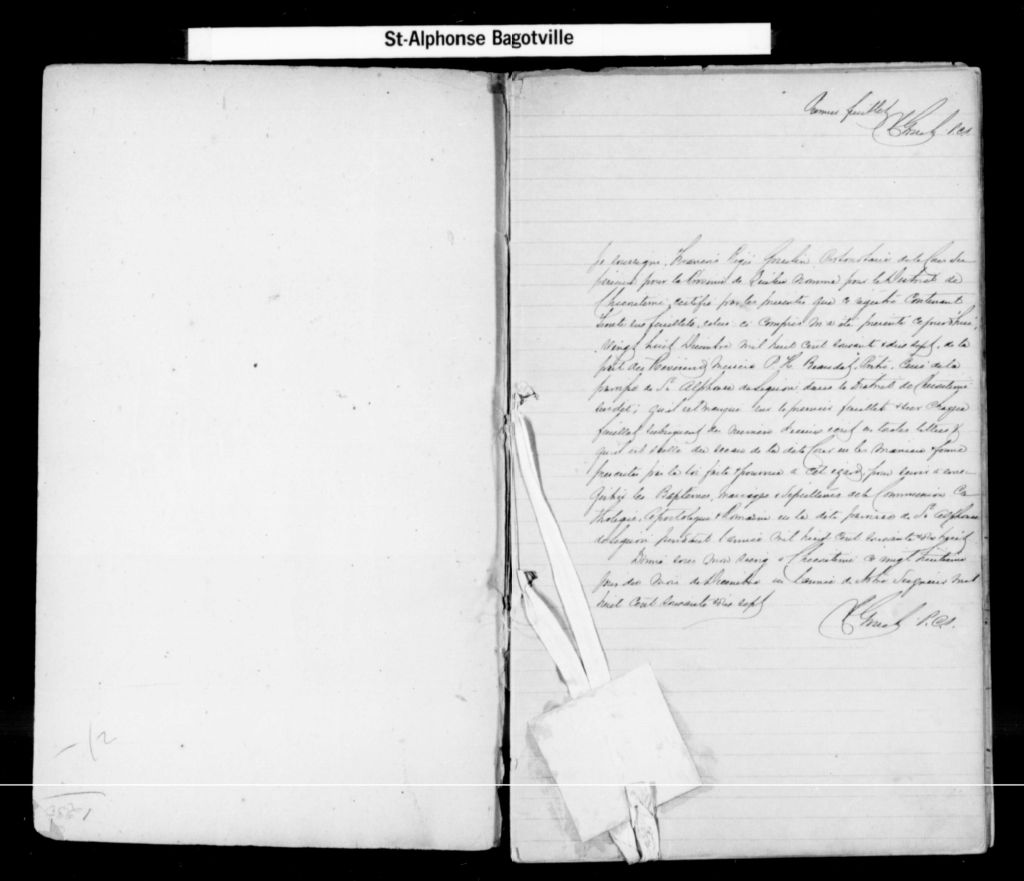 St-Alphonse Bagotville
feuillet
P.C.S.
Je soussigné, François Protonotaire de la Cour Su-
périeure pour la Province de Québec nommé pour le District de
Chicoutimi, certifie par les présentes que ce registre contenant
feuillets, celui-ci compris m'a été présenté ce jourd'hui,
Vingt huit Décembre mil huit cent soixante & dix sept, de la
part du Révérend Messire P. H. Beaudet, Ptre, Curé de la
paroisse de St Alphonse de Liguori dans le District de Chicoutimi
susdit; qu'il est marqué sur le premier feuillet & sur chaque
feuillet subséquent du numéro d'icelui écrit en toutes lettres &
qu'il est scellé du sceau de la dite Cour en la manière & forme
prescrites par la loi faite & pourvue à cet égard, pour servir à enre-
gistrer les Baptêmes, mariages & Sépultures de la Communion Ca-
tholique, Apostolique & Romaine en la dite paroisse de St Alphonse
de Liguori pendant l'année mil huit cent soixante & dix huit
Donné sous mon seing à Chicoutimi ce vingt huitième
jour du mois de Décembre en l'année de Notre Seigneur mil
huit cent soixante & dix sept
P.C.S.
12